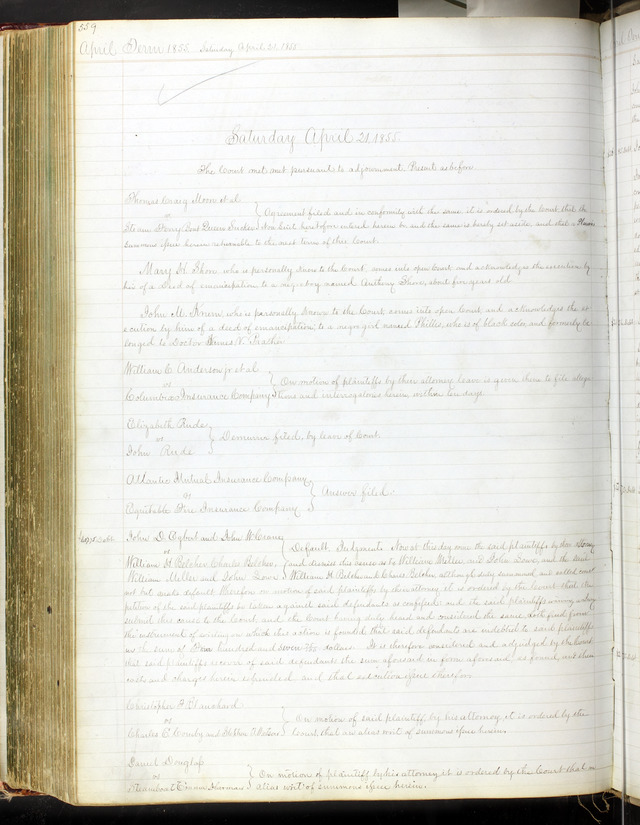 559
April Term 1855. Saturday April 21, 1855
Saturday April 21, 1855.
The Court met pursuant to adjournment. Present as before
Thomas Craig Moore et al
vs } Agreement filed and in conformity with the same it is ordered by the Court that the
Steam Ferry Boat Queen heretofore entered herein be and the same is hereby set aside and that a
Summons issue herein returnable to the next term of this Court.
Mary H. Shore who is personally known to the Court, comes into open Court and acknowledges the execution by
his of a Deed of emancipation to a negro boy named Anthony Shore, about five years old
John M. Krum, who is personally known to the Court comes into open Court, and acknowledges the ex
ecution by him of a deed of emancipation, to a negro girl named Phillis, who is of black color, and formerly be
longed to Doctor James V. Prather
William C. Anderson jr et al
vs } On motion of plaintiffs by their attorney leave is given them to file allega
Columbus Insurance Company } tions and interrogatories herein, within ten days
Elizabeth Rude
vs } Demurrer filed, by leave of Court.
John Rude
Atlantic Mutual Insurance Company
vs } Answer filed.
Equitable Fire Insurance Company
John D. and John McCreary
vs } Default. Judgment. Now at this day come the said plaintiffs by their Attorney
William H Belcher Charles Belcher, and dismiss this cause as to William Miller and John Lowe, and the said
William Miller and John Lowe } William H. Belcher and Charles Belcher, although duly summoned, and called come
not but make default. Therefore on motion of said plaintiffs by their attorney it is ordered by the Court that the
petition of the said plaintiffs be taken against said defendants as confessed; and the said plaintiffs
submit this cause to the Court, and the Court having duly heard and considered the same, doth find from
the instrument of writing on which this action is founded that said defendants are indebted to said plaintiffs
in the sum of hundred and seven dollars. It is therefore considered and adjudged by the Court
that said plaintiffs recover of said defendants the sum aforesaid in form aforesaid, as found, and their
costs and charges herein expended, and that execution issue therefor.
Christopher P. Blanchard
vs } On motion of said plaintiff, by his attorney, it is ordered by the
Charles C. and Stephen } Court that an alias writ of summons issue herein.
Daniel Douglass
vs } On motion of plaintiff by his attorney it is ordered by the Court that an
Steamboat Emma Harmon } alias writ of summons issue herein.